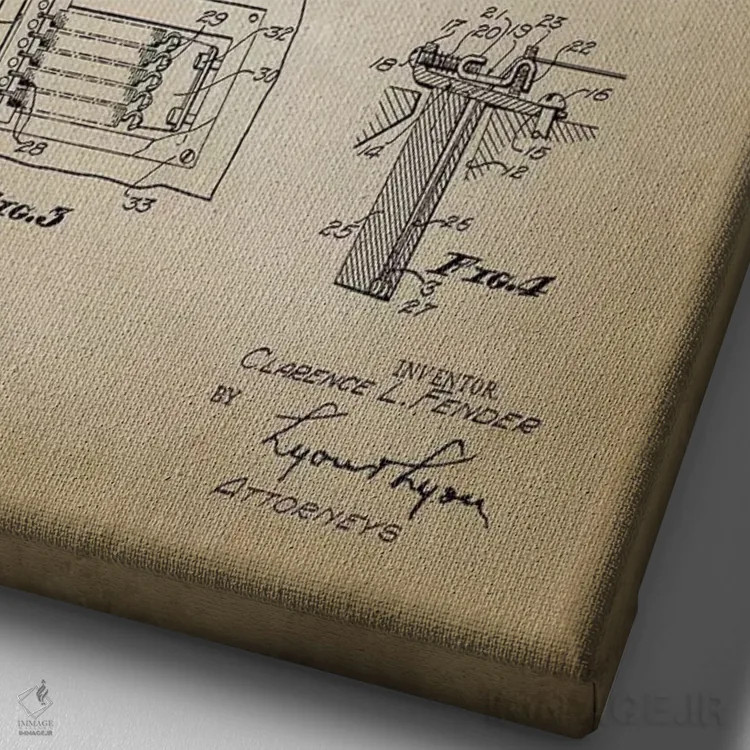 29
32
30
28
33
FIG.3
21
23
17
20
19
22
18
16
14
15
12
25
26
3
27
FIG.4
INVENTOR
CLARENCE L. FENDER
BY
Lyon & Lyon
ATTORNEYS
IMMAGE
IMMAGE.IR
IMMAGE.IR